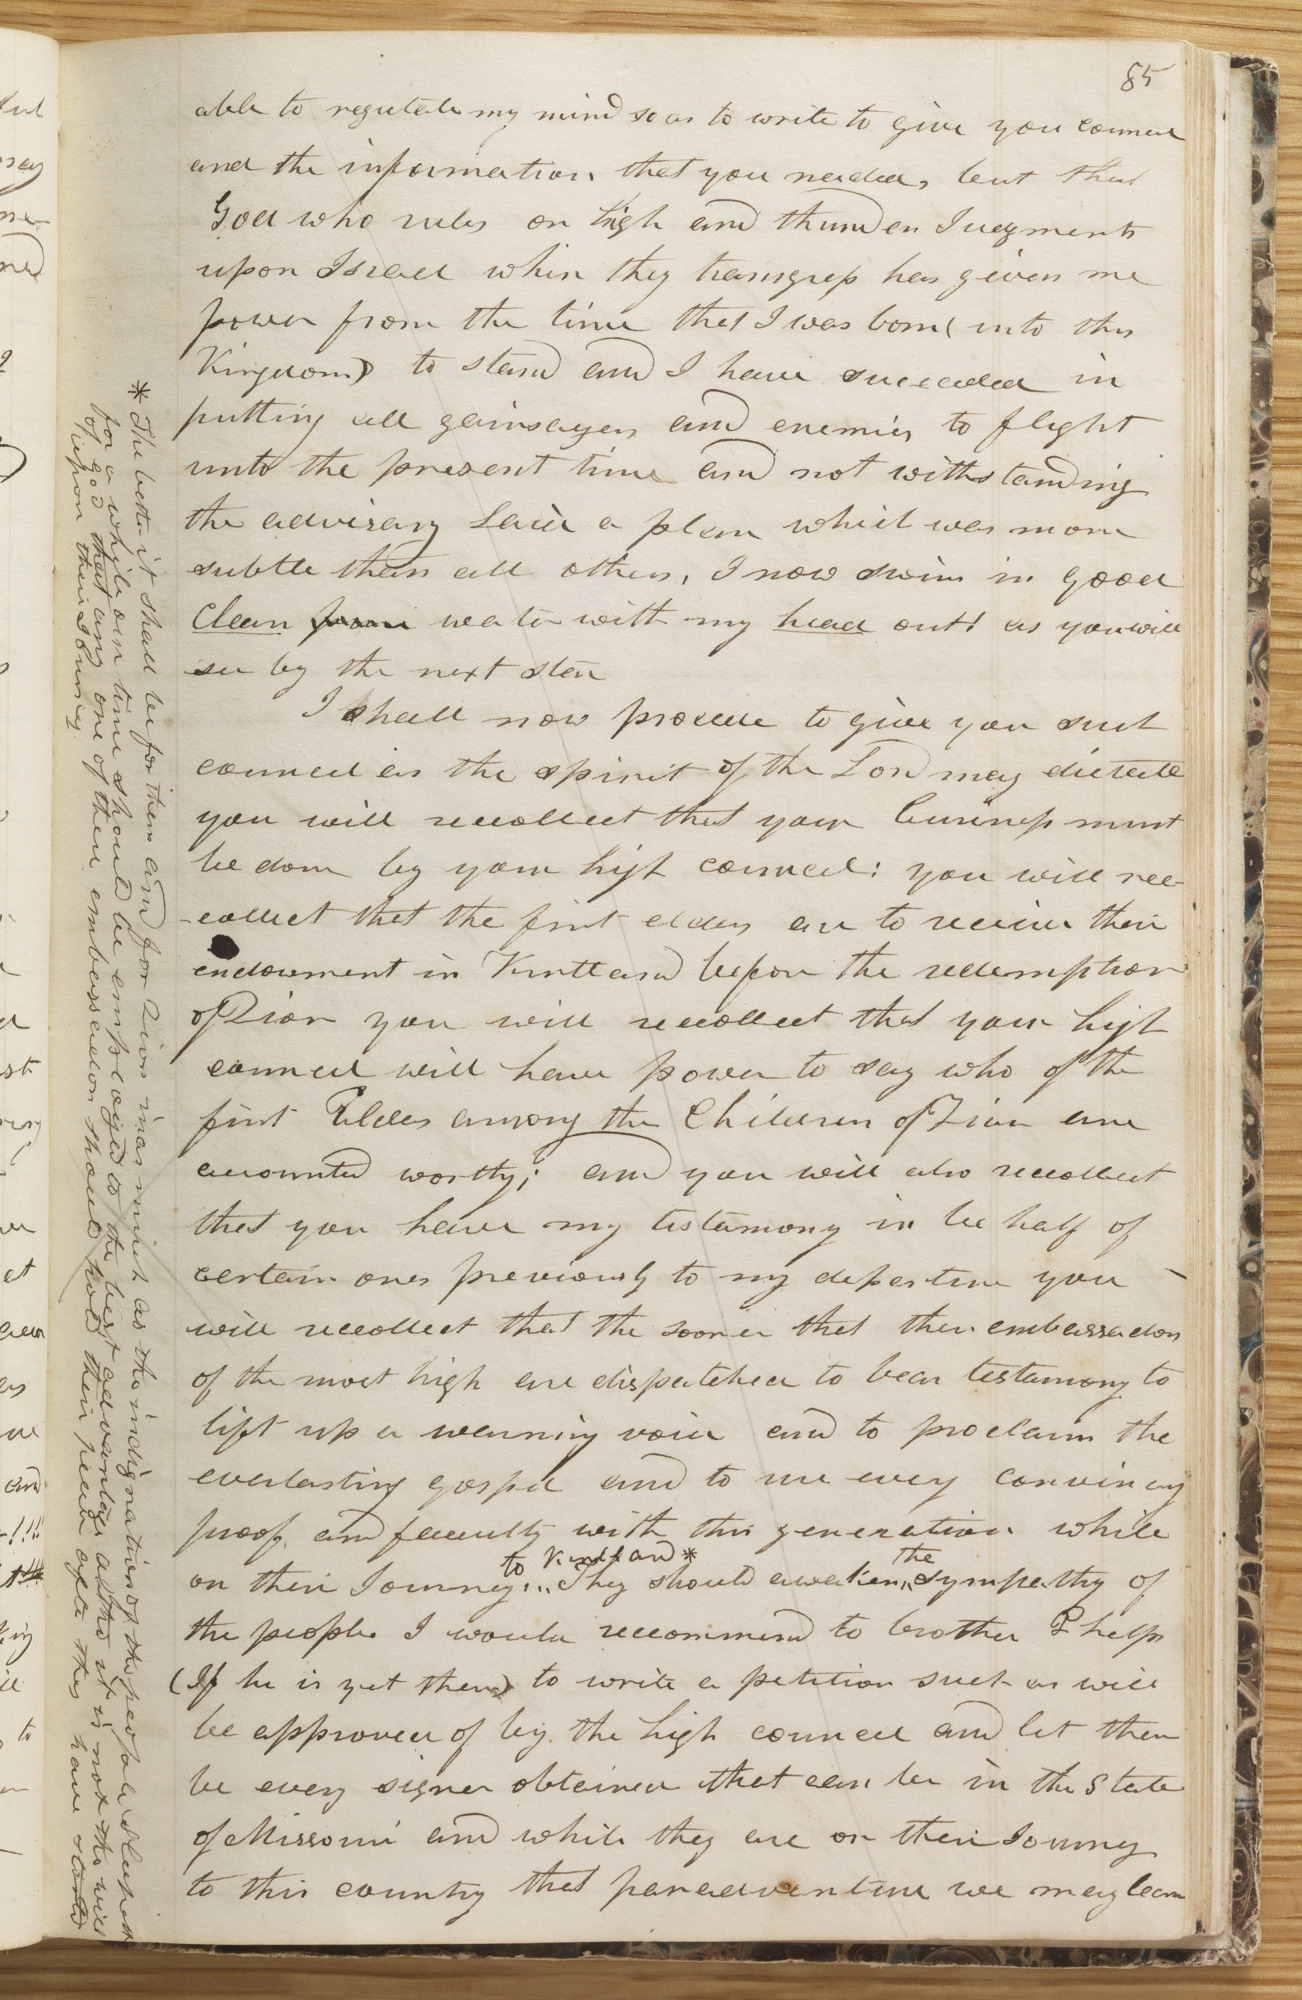 85
able to regulate my mind so as to write to give you councel
and the information that you needed, but that
God who rules on high and thunders Judgments
upon Israel when they transgress has given me
power from the time that I was born (into the
Kingdom) to stand and I have succeeded in
putting all gainsayers and enemies to flight
unto the present time and not withstanding
the adversary Laid a plan which was more
subtle than all others, I now swim in good
clean water with my head out! as you will
see by the next step
I shall now procede to give you such
councel as the spirit of the Lord may dictate
you will recollect that your buisness must
be done by your high councel: you will rec-
-ollect that the first elders are to receive their
endowment in Kirtland before the redemption
of Zion you will recollect that your high
councel will have power to say who of the
first Elders among the Children of Zion are
accounted worthy; and you will also recollect
that you have my testamony in be half of
certain ones previously to my departure you
will recollect that the sooner that these embassadors
of the most high are dispatched to bear testamony to
lift up a warning voice and to proclaim the
everlasting gospel and to use every convincing
proof and faculty with this generation while
on their Journey to Kirtland * They should awaken the sympathy of
the people. I would recommend to brother Phelps
(If he is yet there) to write a petition such as will
be approved of by the high councel and let there
be every signer obtained that can be in the State
of Missouri and while they are on their Journey
to this country that peradventure we may learn
* The better it shall be for them and for Zion inasmuch as the indignation of the people sleepeth
for a while our time should be employed to the best advantage altho it is not the will
of god that any one of these embassadors should hold their peace after they have started
upon their Journey.